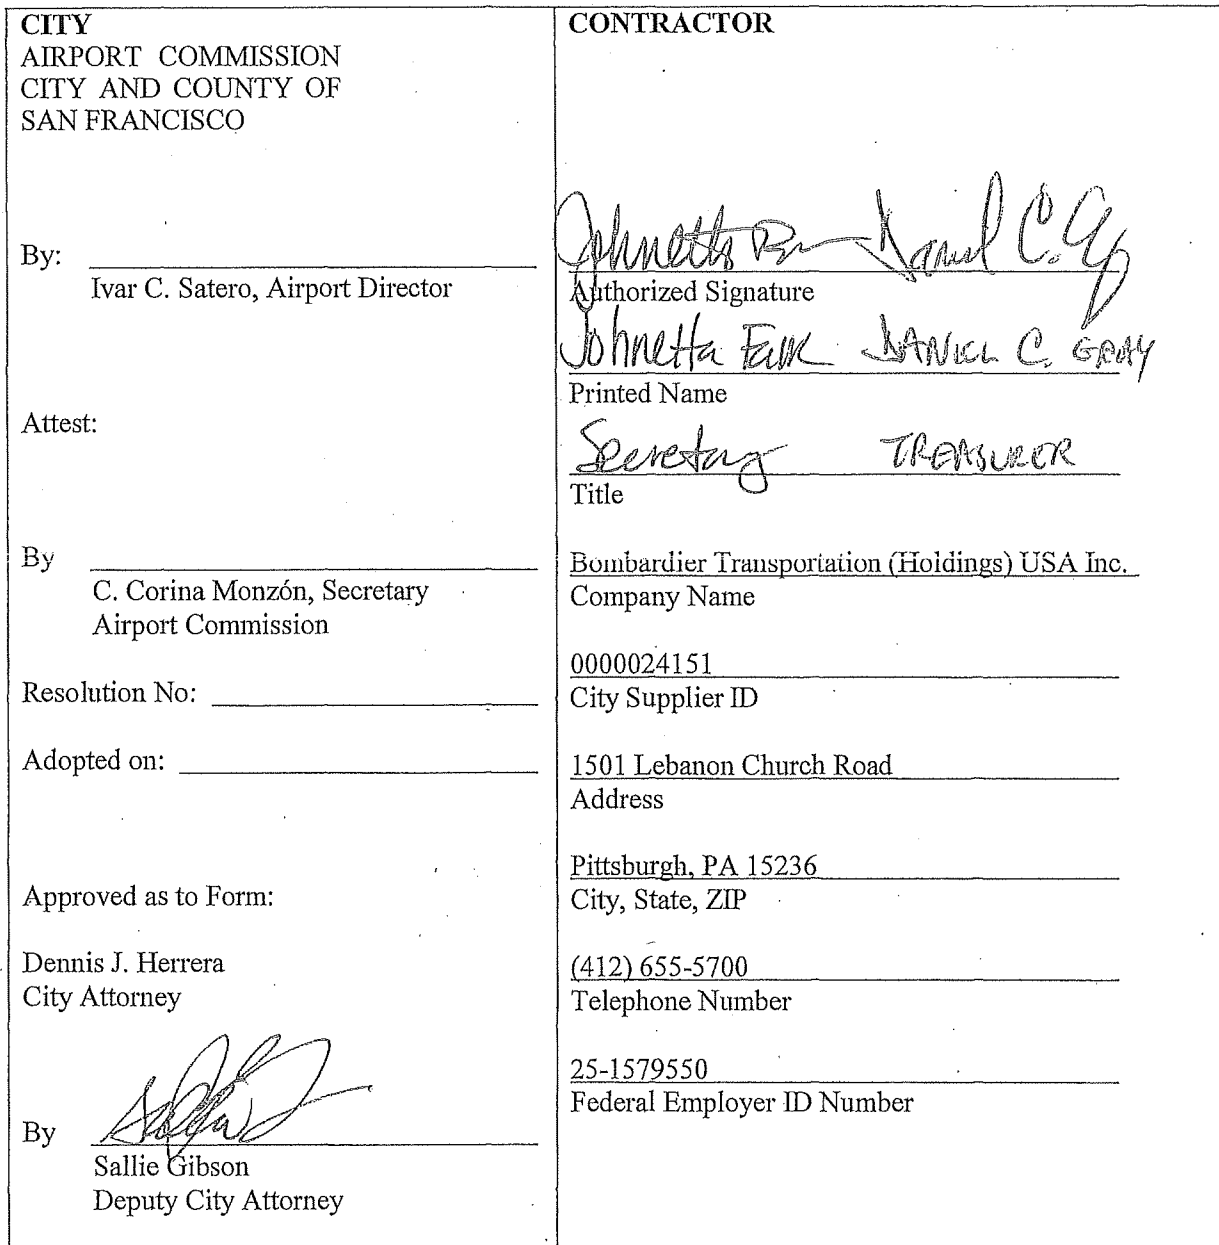 CITY
AIRPORT COMMISSION
CITY AND COUNTY OF
SAN FRANCISCO
By:
Ivar C. Satero, Airport Director
Attest:
By
C. Corina Monzón, Secretary
Airport Commission
Resolution No:
Adopted on:
Approved as to Form:
Dennis J. Herrera
City Attorney
By
Sallie Gibson
Deputy City Attorney
CONTRACTOR
Johnetta Daniel C.
Authorized Signature
Johnetta DANIEL C. GRAY
Printed Name
Secretary TREASURER
Title
Bombardier Transportation (Holdings) USA Inc.
Company Name
0000024151
City Supplier ID
1501 Lebanon Church Road
Address
Pittsburgh, PA 15236
City, State, ZIP
(412) 655-5700
Telephone Number
25-1579550
Federal Employer ID Number